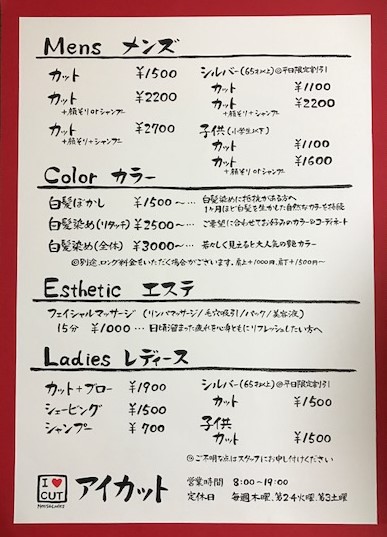 Mens メンズ
カット ¥1500
カット ¥2200
+顔そりorシャンプー
カット ¥2700
+顔そり+シャンプー
シルバー(65才以上)◎平日限定割引
カット ¥1100
カット ¥2200
+顔そり+シャンプー
子供(小学生以下)
カット ¥1100
カット ¥1600
+顔そりorシャンプー
Color カラー
白髪ぼかし ¥1500～… 白髪染めに抵抗がある方へ
1ヶ月ほど白髪を生かした自然なカラーを持続
白髪染め(リタッチ) ¥2500～… ご要望に合わせてお好みのカラーをコーディネート
白髪染め(全体) ¥3000～… 若々しく見えると大人気の艶カラー
◎別途、ロング料金をいただく場合がございます。肩上+1000円、肩下+1500円～
Esthetic エステ
フェイシャルマッサージ (リンパマッサージ/毛穴吸引/パック/美容液)
15分 ¥1000 … 日頃溜まった疲れを心身ともにリフレッシュしたい方へ
Ladies レディース
カット+ブロー ¥1900
シェービング ¥1500
シャンプー ¥700
シルバー(65才以上)◎平日限定割引
カット ¥1500
子供
カット ¥1500
◎ご不明な点はスタッフにお申し付けください
I ♥ CUT
アイカット
営業時間 8:00～19:00
定休日 毎週木曜、第2・4火曜、第3土曜